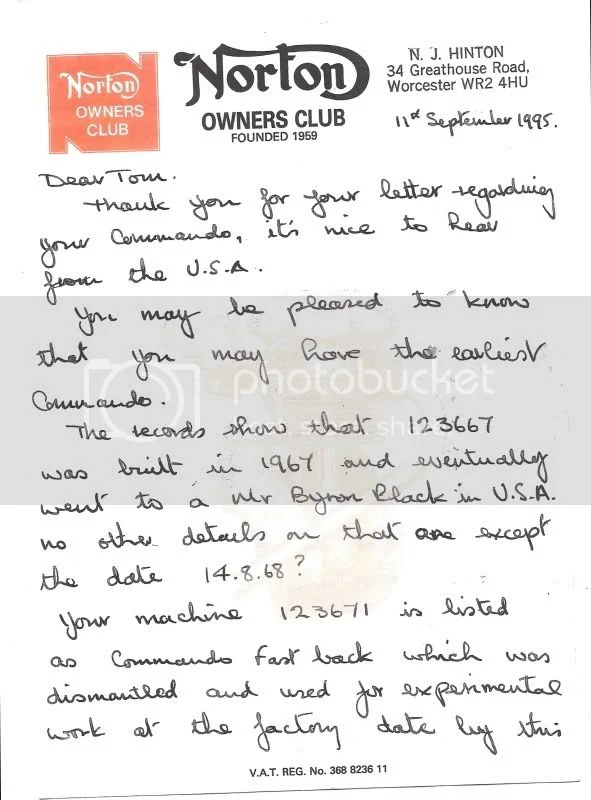 Norton
OWNERS
CLUB
Norton
OWNERS CLUB
FOUNDED 1959
N. J. HINTON
34 Greathouse Road,
Worcester WR2 4HU
11st September 1995.
Dear Tom.
Thank you for your letter regarding
your Commando, it's nice to hear
from the U.S.A.
You may be pleased to know
that you may have the earliest
Commando.
The records show that 123667
was built in 1967 and eventually
went to a Mr Byron Black in U.S.A.
no other details on that one except
the date 14.8.68?
Your machine 123671 is listed
as Commando Fastback which was
dismantled and used for experimental
work at the factory date by this
V.A.T. REG. No. 368 8236 11
photobucket